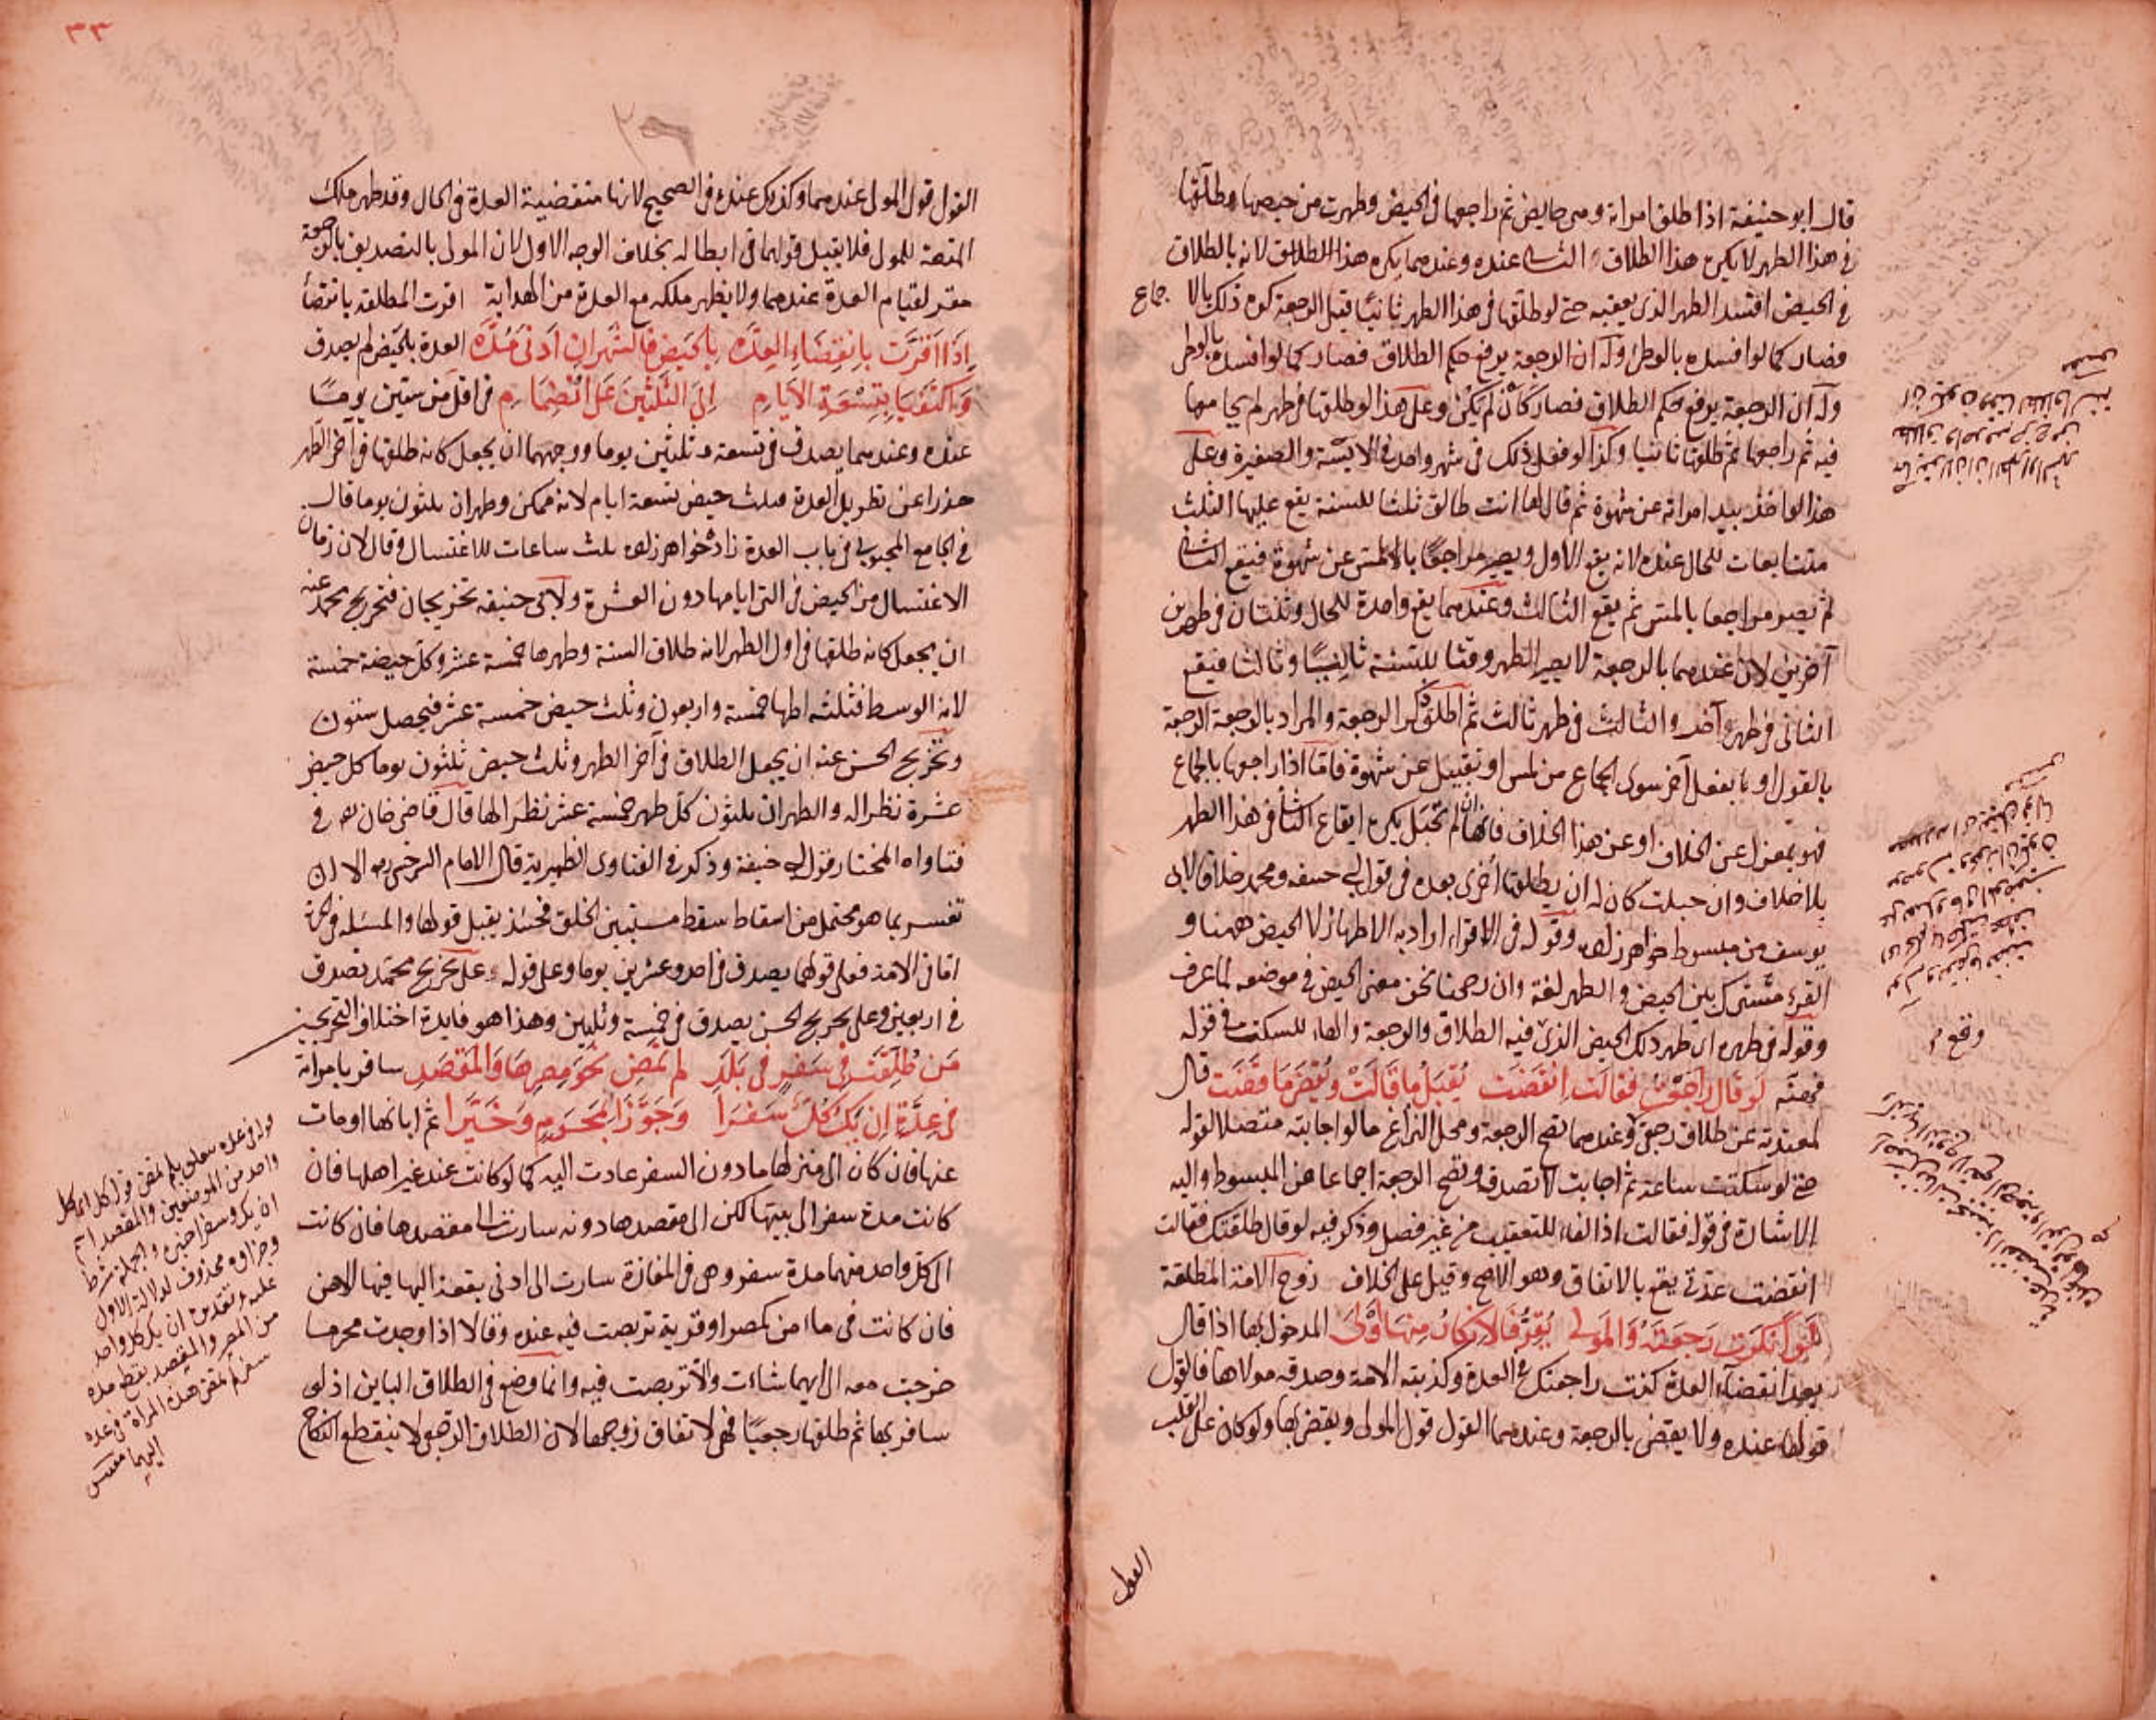 قال ابو حنيفة اذا طلق امراته وهى حايض ثم راجعها فى الحيض وطهرت من حيضها وطلقها
فى هذا الطهر لا يكره هذا الطلاق الثانى عنده وعندهما يكره هذا الطلاق لانه بالطلاق
فى الحيض افسد الطهر الذى يعقبه حتى لو طلقها فى هذا الطهر ثانيا قبل الرجعة كره ذلك بلا جماع
فصار كما لو افسده بالوطئ وله ان الرجعة يرفع حكم الطلاق فصار كما لو افسده بالوطى
وله ان الرجعة يرفع حكم الطلاق فصار كأن لم يكن وعلى هذا لو طلقها فى طهر لم يجامعها
فيه ثم راجعها ثم طلقها ثانيا وكذا لو فعل ذلك فى شهر واحد فى الآيسة والصغيرة وعلى
هذا لو اخذ بيد امراته عن شهوة ثم قال لها انت طالق ثلثا للسنة يقع عليها الثلث
متتابعات للحال عنده لانه يقع الاول ويصير مراجعا بالمس عن شهوة فيقع الثانى
ثم يصير مراجعا بالمس ثم يقع الثالث وعندهما يقع واحدة للحال وثنتان فى طهرين
آخرين لان عندهما بالرجعة لا يصير الطهر وقتا للسنة ثانيا وثالثا فيقع
الثانى فى طهر آخر والثالث فى طهر ثالث ثم اطلق ذكر الرجعة والمراد بالرجعة الرجعة
بالقول او بفعل آخر سوى الجماع من لمس او تقبيل عن شهوة فاما اذا راجعها بالجماع
فهو بمعزل عن الخلاف او عن هذا الخلاف فانها ان لم تحبل يكره ايقاع الثانى فى هذا الطهر
بلا خلاف وان حبلت كان له ان يطلقها أخرى بعده فى قول ابى حنيفه ومحمد خلافا لابى
يوسف من مبسوط خواهر زاده وقوله فى الاقراء اراد به الاطهار لا الحيض ههنا و
القرء مشترك بين الحيض والطهر لغة وان رجحنا نحن معنى الحيض فى موضعه لما عرف
وقوله فى طهره اى طهر ذلك الحيض الذى فيه الطلاق والرجعة والهاء للسكت فى قوله
لو قال راجعت فقالت انقضت يقبل ما قالت ويقض ما قضت قال
لمعتدته عن طلاق رجعى وعندهما تصح الرجعة ومحل النزاع ما لو اجابته متصلا لقوله
حتى لو سكتت ساعة ثم اجابت لا تصدق وتصح الرجعة اجماعا من المبسوط واليه
الاشارة فى قوله فقالت اذ الفاء للتعقيب من غير فصل وذكر فيه لو قال طلقتك فقالت
انقضت عدتى يقع بالاتفاق وهو الاصح وقيل على الخلاف زوج الامة المطلقة
لو انكرت رجعته والمولى يقر فالانكار منها اولى المدخول بها اذا قال
بعد انقضاء العدة كنت راجعتك فى العدة وكذبته الامة وصدقه مولاها فالقول
قولها عنده ولا يقضى بالرجعة وعندهما القول قول المولى ويقضى بها ولو كان على القلب
القول
٣٣
القول قول المولى عندهما وكذلك عنده فى الصحيح لانها منقضية العدة فى الحال وقد ظهر ملك
المتعة للمولى فلا يقبل قولها فى ابطاله بخلاف الوجه الاول لان المولى بالتصديق بالرجعة
مقر لقيام العدة عندهما ولا يظهر ملكه مع العدة من الهداية اقرت المطلقة بانقضاء
اذا اقرت بانقضاء العده بالحيض فالشهران ادنى مده العدة بالحيض لم يصدق
واكتفيا بتسعة الايام الى الثلثين على انضمام فى اقل من ستين يوما
عنده وعندهما يصدق فى تسعة وثلثين يوما ووجههما ان يجعل كانه طلقها فى آخر الطهر
حذرا عن تطويل العدة فثلث حيض تسعة ايام لانه ممكن وطهران ثلثون يوما قال
فى الجامع المحبوبى فى باب العدة زاد خواهر زاده ثلث ساعات للاغتسال وقال لان زمان
الاغتسال من الحيض فى التى ايامها دون العشرة ولابى حنيفه تخريجان فتخريج محمد عنه
ان يجعل كانه طلقها فى اول الطهر لانه طلاق السنة وطهرها خمسة عشر وكل حيضة خمسة
لانه الوسط فثلثه اطهار خمسة واربعون وثلث حيض خمسة عشر فيحصل ستون
وتخريج الحسن عنه ان يجعل الطلاق فى آخر الطهر وثلث حيض ثلثون يوما كل حيض
عشرة نظرا له والطهران ثلثون كل طهر خمسة عشر نظرا لها قال قاضى خان فى
فتاواه المختار قول ابى حنيفة وذكر فى الفتاوى الظهيرية قال الامام السرخسى الا ان
تفسر بما هو محتمل من اسقاط سقط مستبين الخلق فحينئذ يقبل قولها والمسئله فى الحرة
اما فى الامة فعلى قولهما يصدق فى احد وعشرين يوما وعلى قوله على تخريج محمد تصدق
فى اربعين وعلى تخريج الحسن يصدق فى خمسة وثلثين وهذا هو فايدة اختلاف التخريجين
من طلقت فى سفر فى بلد لم تمض نحو مصرها والمقصد سافر بامراته
فى عدة ان يك كل سفرا وجوزا بمحرم وخيرا ثم ابانها او مات
عنها فان كان الى منزلها مادون السفر عادت اليه كما لو كانت عند غير اهلها فان
كانت مدة سفر الى بيتها لكن الى مقصدها دونه سارت الى مقصدها فان كانت
الى كل واحد منهما مدة سفر وهى فى المفازة سارت الى ادنى بقعة اليها فيها الامن
فان كانت فى مامن كمصر او قرية تربصت فيه عنده وقالا اذا وجدت محرما
خرجت معه الى ايهما شاءت والا تربصت فيه وانما وضع فى الطلاق الباين اذ لو
سافر بها ثم طلقها رجعيا فهى لا تفارق زوجها لان الطلاق الرجعى لا ينقطع النكاح
قوله فى عده متعلق بلم تمض قوله كل اى كل
واحد من الموضعين والمقصد اسم
ان يك وسفرا خبره والجملة شرط
وجزاؤه محذوف لدلالة الاول
عليه وتقديره ان يك كل واحد
من المصر والمقصد بقطع مده
سفر لم تمض هذه المراة فى عده
اليهما